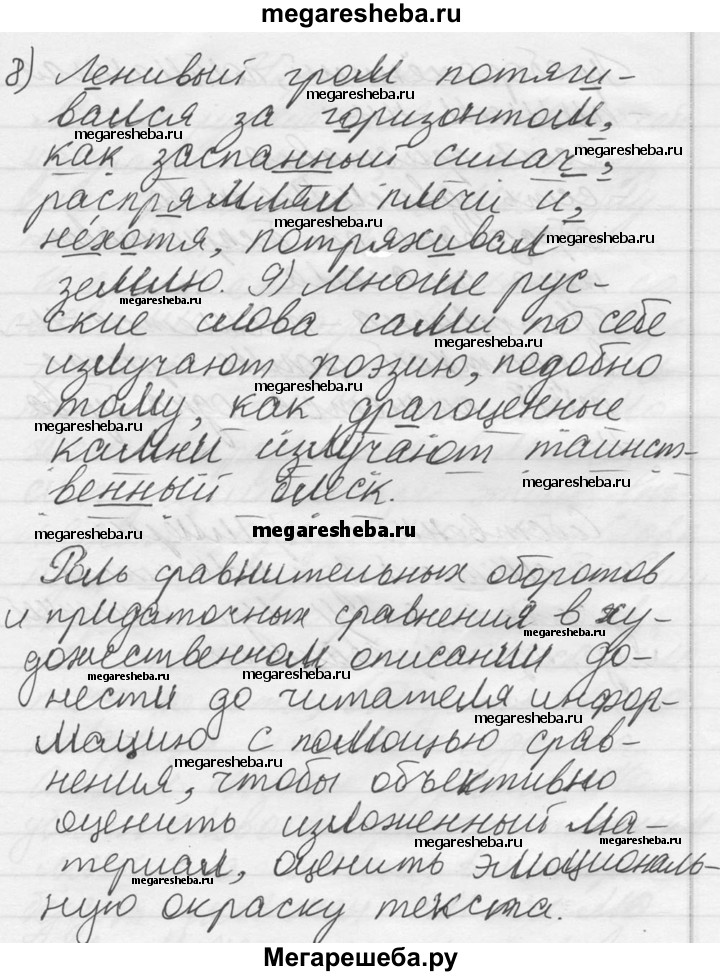 megaresheba.ru
8) Ленивый гром потяги-
megaresheba.ru
вался за горизонтом,
megaresheba.ru
как заспанный силач,
megaresheba.ru
распрямлял плечи и,
megaresheba.ru
нехотя, потряхивал
землю. 9) Многие рус-
megaresheba.ru
ские слова сами по себе
megaresheba.ru
излучают поэзию, подобно
megaresheba.ru
тому, как драгоценные
megaresheba.ru
камни излучают таинст-
megaresheba.ru
венный блеск.
megaresheba.ru
megaresheba.ru
Роль сравнительных оборотов
megaresheba.ru
и придаточных сравнения в ху-
megaresheba.ru
дожественном описании до-
megaresheba.ru
нести до читателя инфор-
megaresheba.ru
мацию с помощью срав-
megaresheba.ru
нения, чтобы объективно
оценить изложенный ма-
megaresheba.ru
териал, оценить эмоциональ-
megaresheba.ru
ную окраску текста.
Мегарешеба.ру